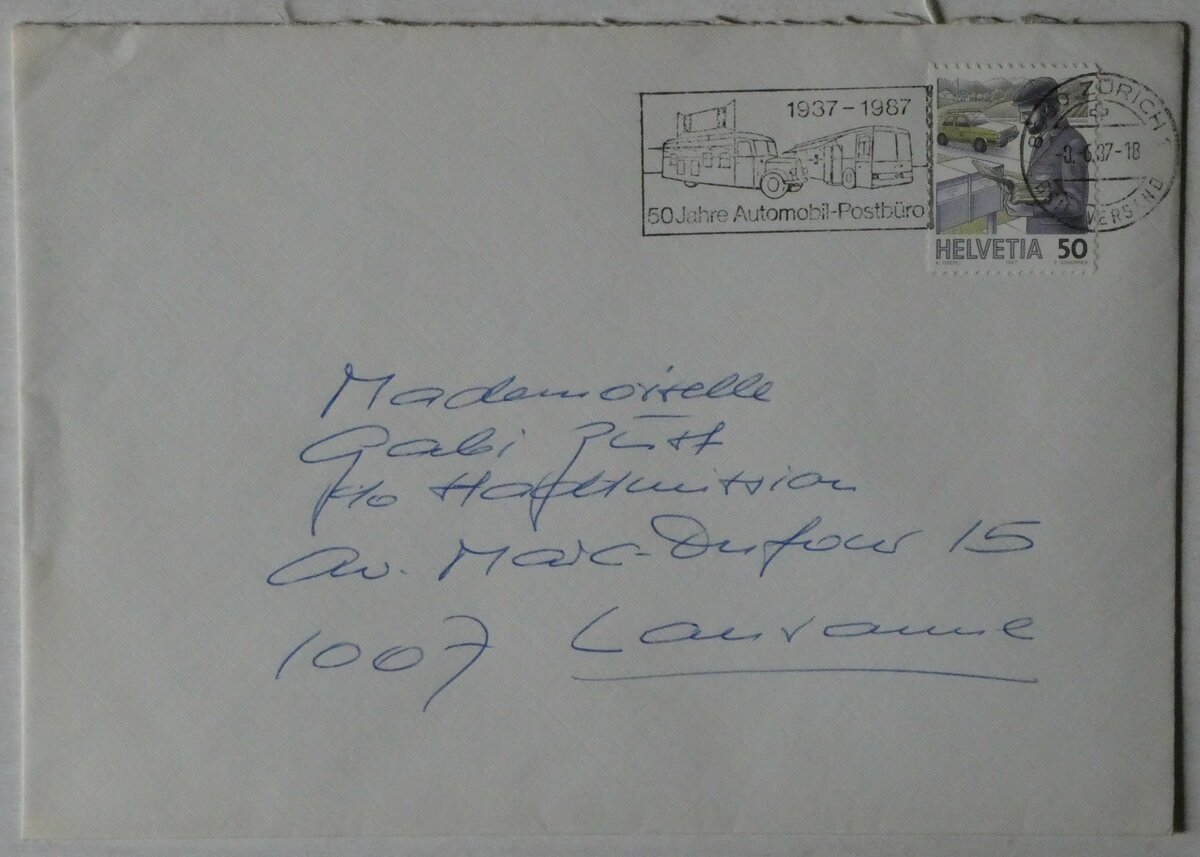 1937-1987
50 Jahre Automobil-Postbüro
ZÜRICH
-8.-6.87-18
HELVETIA 50
Mademoiselle
Gabi Züst
c/o Stadtmission
Av. Marc-Dufour 15
1007 Lausanne